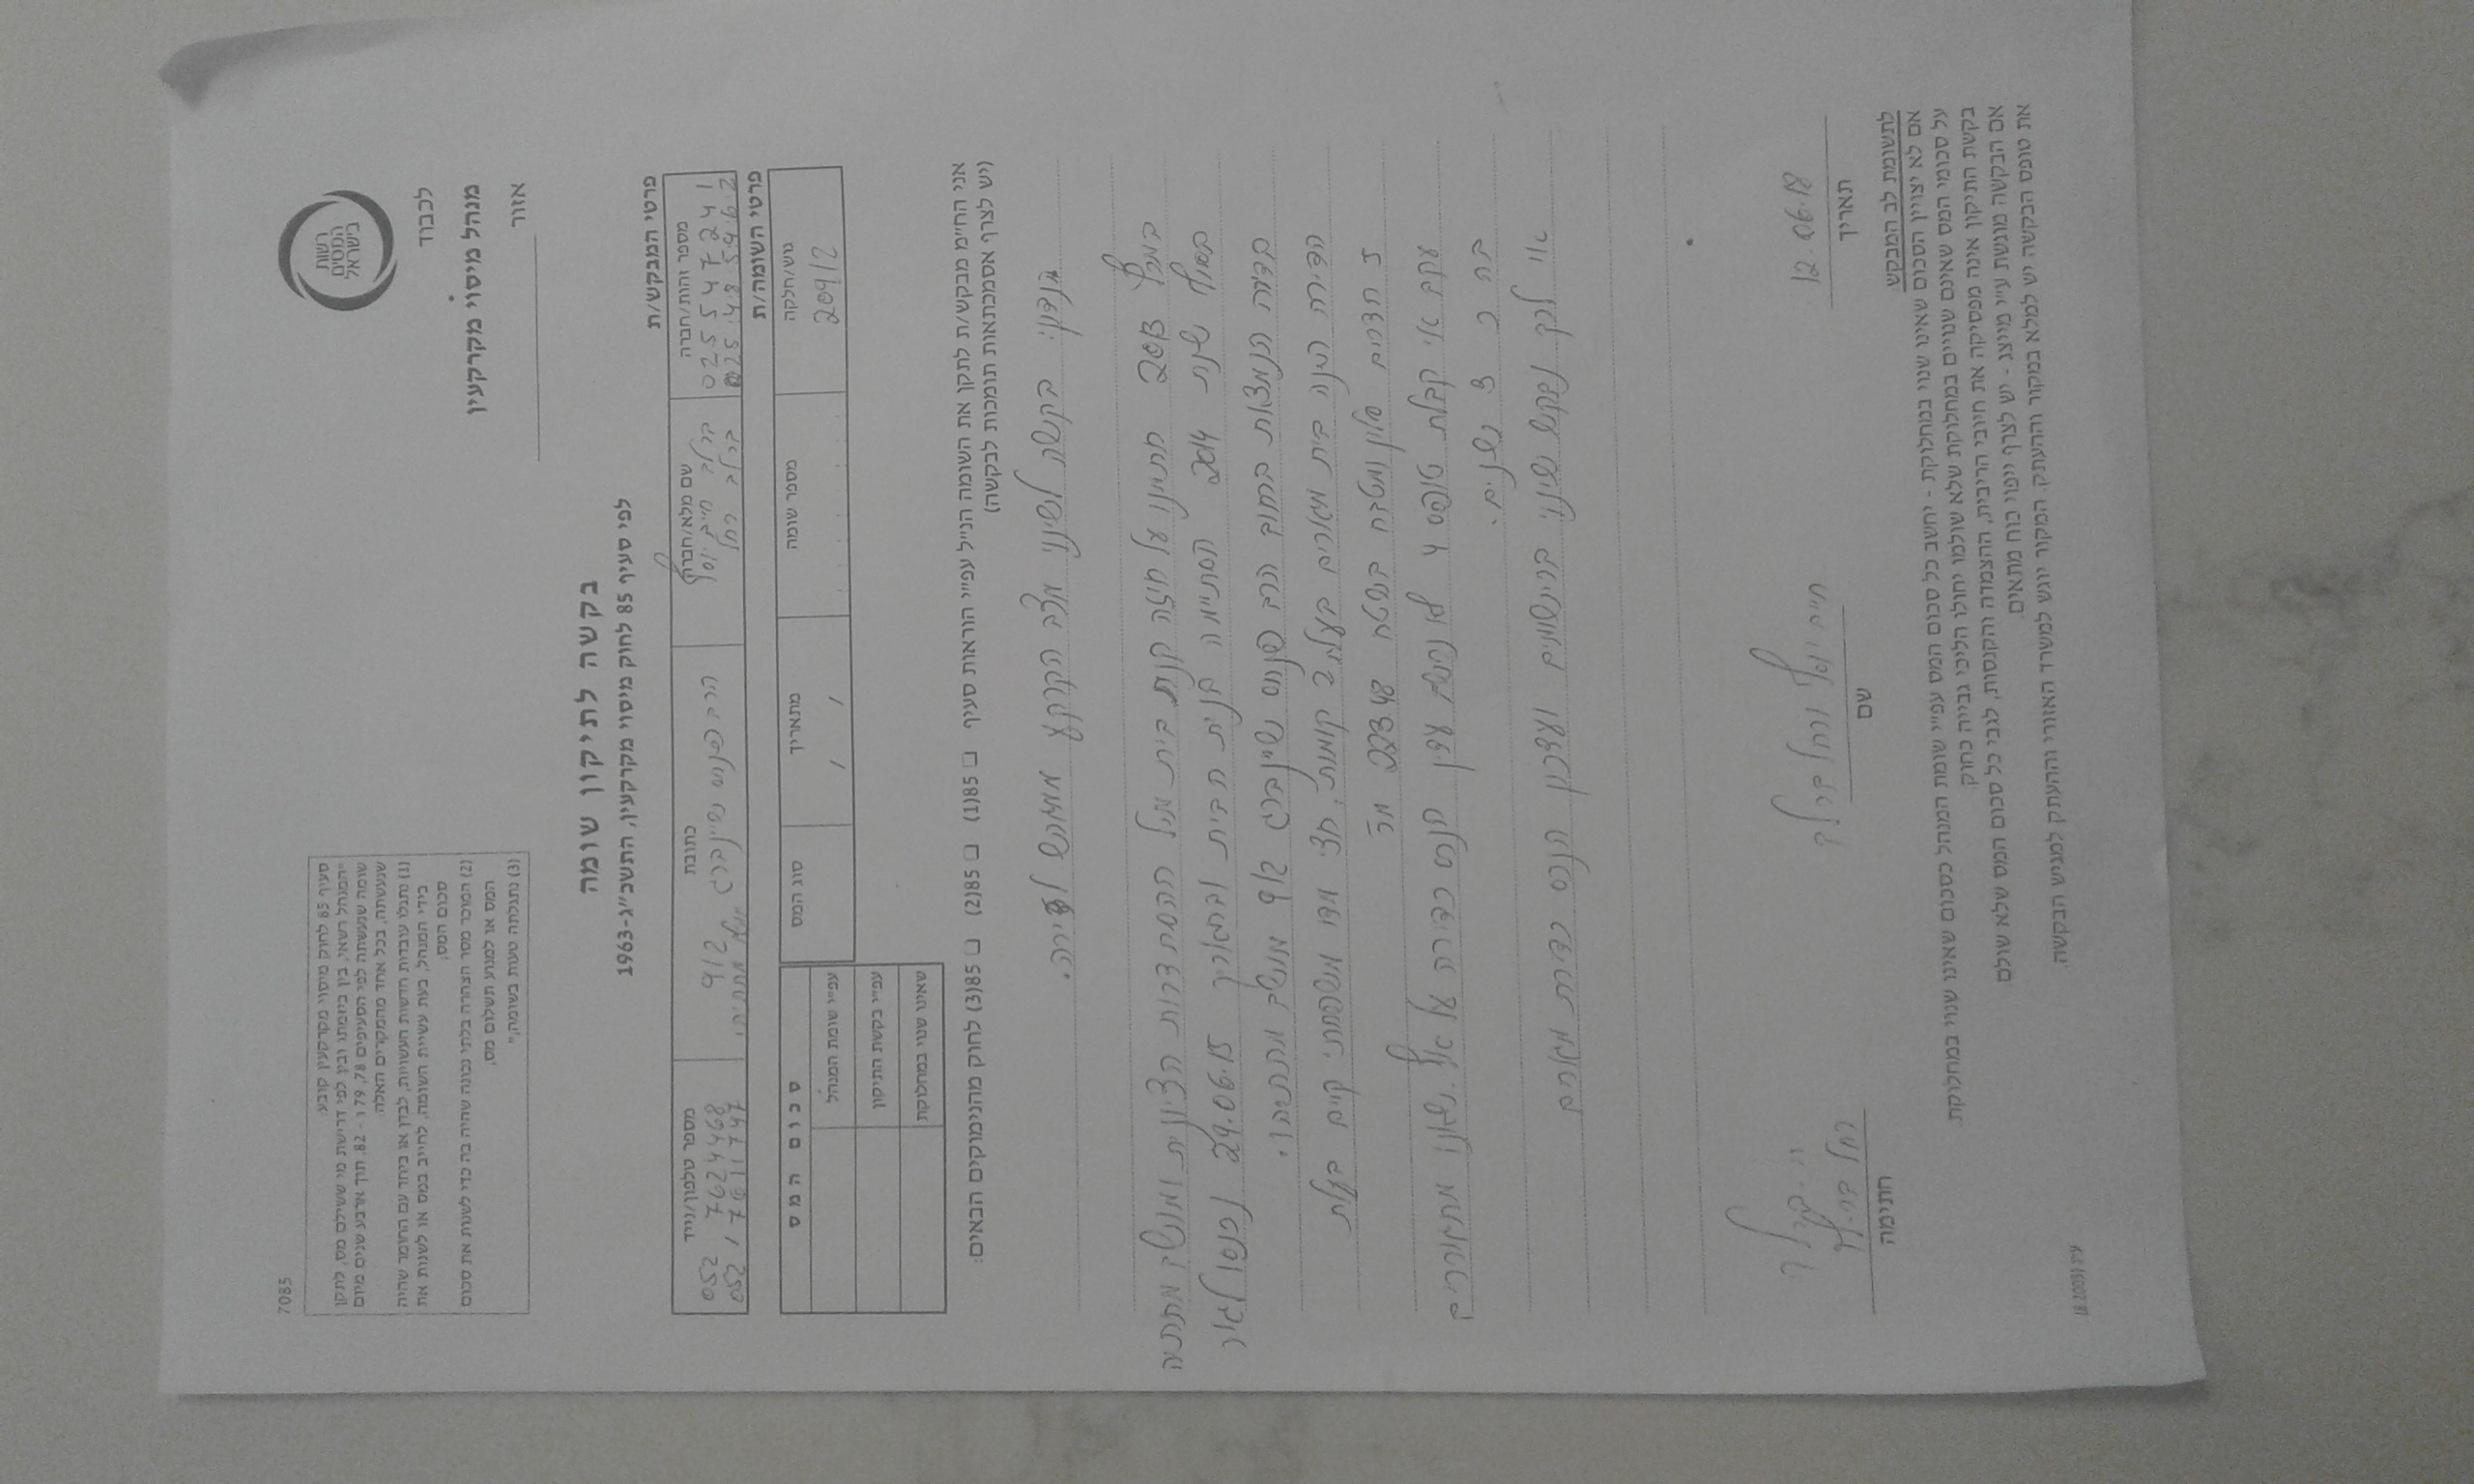 7085
רשות
המסים
בישראל
סעיף 85 לחוק מיסוי מקרקעין קובע:
"המנהל רשאי, בין ביוזמתו ובין לפי דרישת מי ששילם מס, לתקן
שומה שנעשתה לפי הסעיפים 78, 79 ו - 82, תוך ארבע שנים מיום
שנעשתה, בכל אחד מהמקרים האלה:
(1) נתגלו עובדות חדשות העשויות, לבדן או ביחד עם החומר שהיה
בידי המנהל, בעת עשיית השומה, לחייב במס או לשנות את
סכום המס;
(2) המוכר מסר הצהרה בלתי נכונה שהיה בה כדי לשנות את סכום
המס או למנוע תשלום מס,
(3) נתגלתה טעות בשומה,"
לכבוד
מנהל מיסוי מקרקעין
אזור
בקשה לתיקון שומה
לפי סעיף 85 לחוק מיסוי מקרקעין, התשכ"ג-1963
פרטי המבקש/ת
מספר זהות/חברה שם מלא/חברה כתובת מספר טלפון/נייד
025547241 ברלב חיים יוסף הרב פנחס שיינברג 9/2 052 7624468
025485462 ברלב רחל מתתיהו 052 7611747
פרטי השומה/ת
גוש/חלקה מספר שומה מתאריך סוג המס סכום המס
209/2 / /
עפ"י שומת המנהל
עפ"י בקשת התיקון
שאינו שנוי במחלוקת
אני הח"מ מבקש/ת לתקן את השומה הנ"ל עפ"י הוראות סעיף ❑ 85(1) ❑ 85(2) ❑ 85(3) לחוק מהנימוקים הבאים:
(יש לצרף אסמכתאות תומכות לבקשה)
הנדון: בקשה לשינוי מצב הקרקע ממגרש לדירה.
במרץ 2013 חתמנו על חוזה קנית בית מול ההסתדרות הציונית ומושב מתתיה
בסוף שנת 2014 הסתיימה בנית הבית ובתאריך 24.06.15 נכנסו לגור
בדירה הנמצאת ברחוב הרב פנחס שיינברג 9/2 מושב מתתיהו.
הדירה הינה בית מגורים בעלת 2 קומות, חצי דו משפחתי קיים בעלת
5 חדרים סלון ומטבח בשטח 223.48 מ"ר
עקב אי קבלת טופס 4 לא נרשם עדין הנכס כדירה על אף שאנו מתגוררים
בה כ 3 שנים.
אי לכך נבקש שינוי ברישומים ועדכון הנכס כדירת מגורים
12.06.18 חיים יוסף ורחל ברלב ח. ברלב
רחל ברלב
תאריך שם חתימה
לתשומת לב המבקש:
אם לא יצויין הסכום שאינו שנוי במחלוקת - יחשב כל סכום המס עפ"י שומת המנהל כסכום שאינו שנוי במחלוקת.
על סכומי המס שאינם שנויים במחלוקת שלא שולמו יחולו הליכי גבייה כחוק.
בקשת התיקון אינה מפסיקה את חיובי הריבית, ההצמדה והקנסות, לגבי כל סכום המס שלא שולם.
אם הבקשה מוגשת ע"י מייצג - יש לצרף ייפוי כוח מתאים.
את טופס הבקשה יש למלא במקור וההעתק. המקור יוגש למשרד האזורי וההעתק למגיש הבקשה.